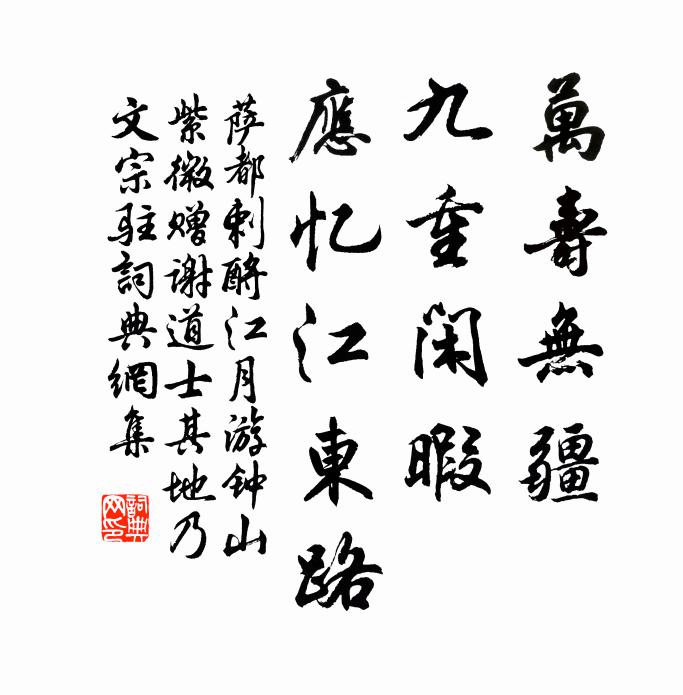 萬壽無疆
九重閑暇
應忆江東路
萨都剌酹江月游钟山
紫微赠谢道士其地乃
文宗驻詞典網集
詞典
网印